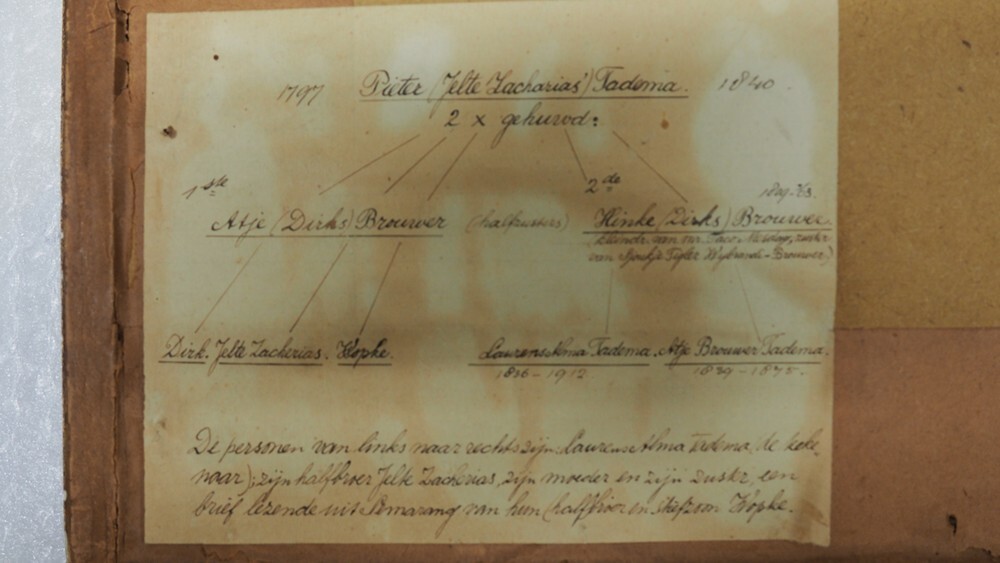 1797 Pieter (Jelte Zacharias) Tadema. 1840.
2 x gehuwd:
1ste 2de 1809-'63.
Atje (Dirks) Brouwer (halfzusters) Hinke (Dirks) Brouwer
van mr. Taco Mesdag, zuster
van Sjoukje Tigler Wybrandi-Brouwer)
Dirk. Jelte Zacherias. Kopke. Laurens Alma Tadema. Atje Brouwer Tadema.
1836-1912
De personen van links naar rechts zijn: Laurens Alma Tadema (de teke-
naar); zijn halfbroer Jelte Zacherias, zijn moeder en zijn zuster, een
brief lezende uit Semarang van hun (half)broer en stiefzoon Kopke.